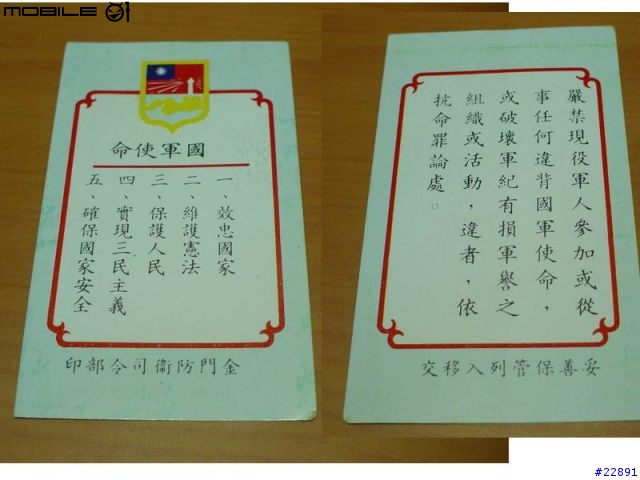 MOBILE01
國軍使命
一、效忠國家
二、維護憲法
三、保護人民
四、實現三民主義
五、確保國家安全
金門防衛司令部印
嚴禁現役軍人參加或從
事任何違背國軍使命，
或破壞軍紀有損軍譽之
組織或活動，違者，依
抗命罪論處。
妥善保管列入移交
#22891